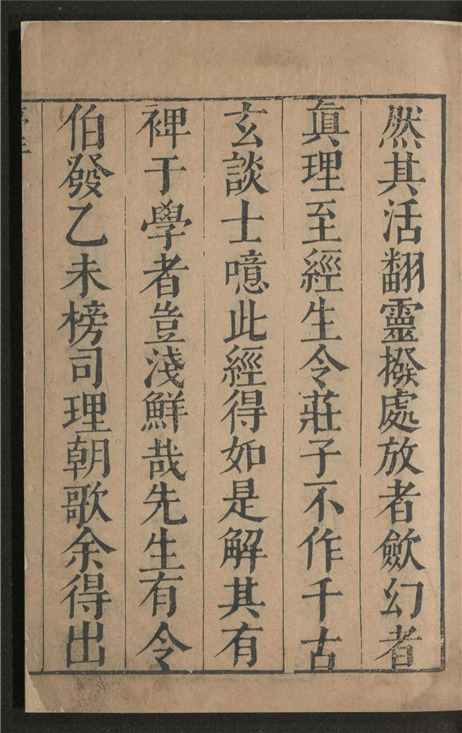 然其活翻靈撥處放者歛幻者
眞理至經生令莊子不作千古
玄談士噫此經得如是解其有
裨于學者豈淺鮮哉先生有令
伯發乙未榜司理朝歌余得出